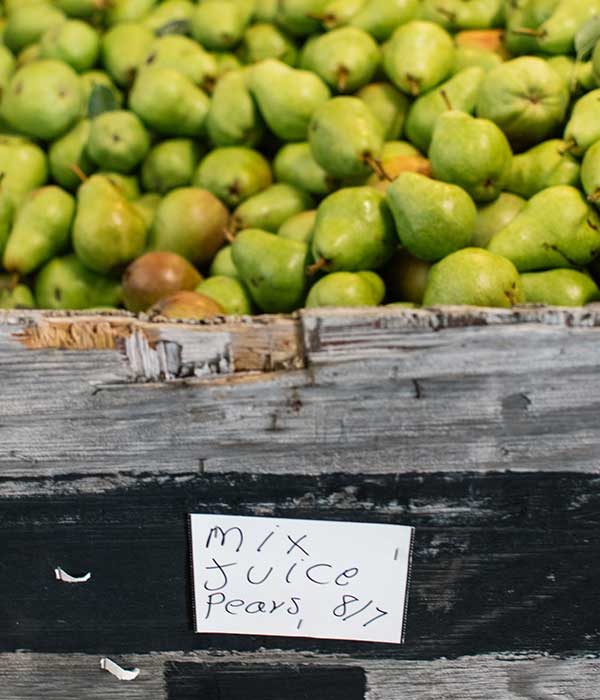 mix
Juice
Pears, 8/7